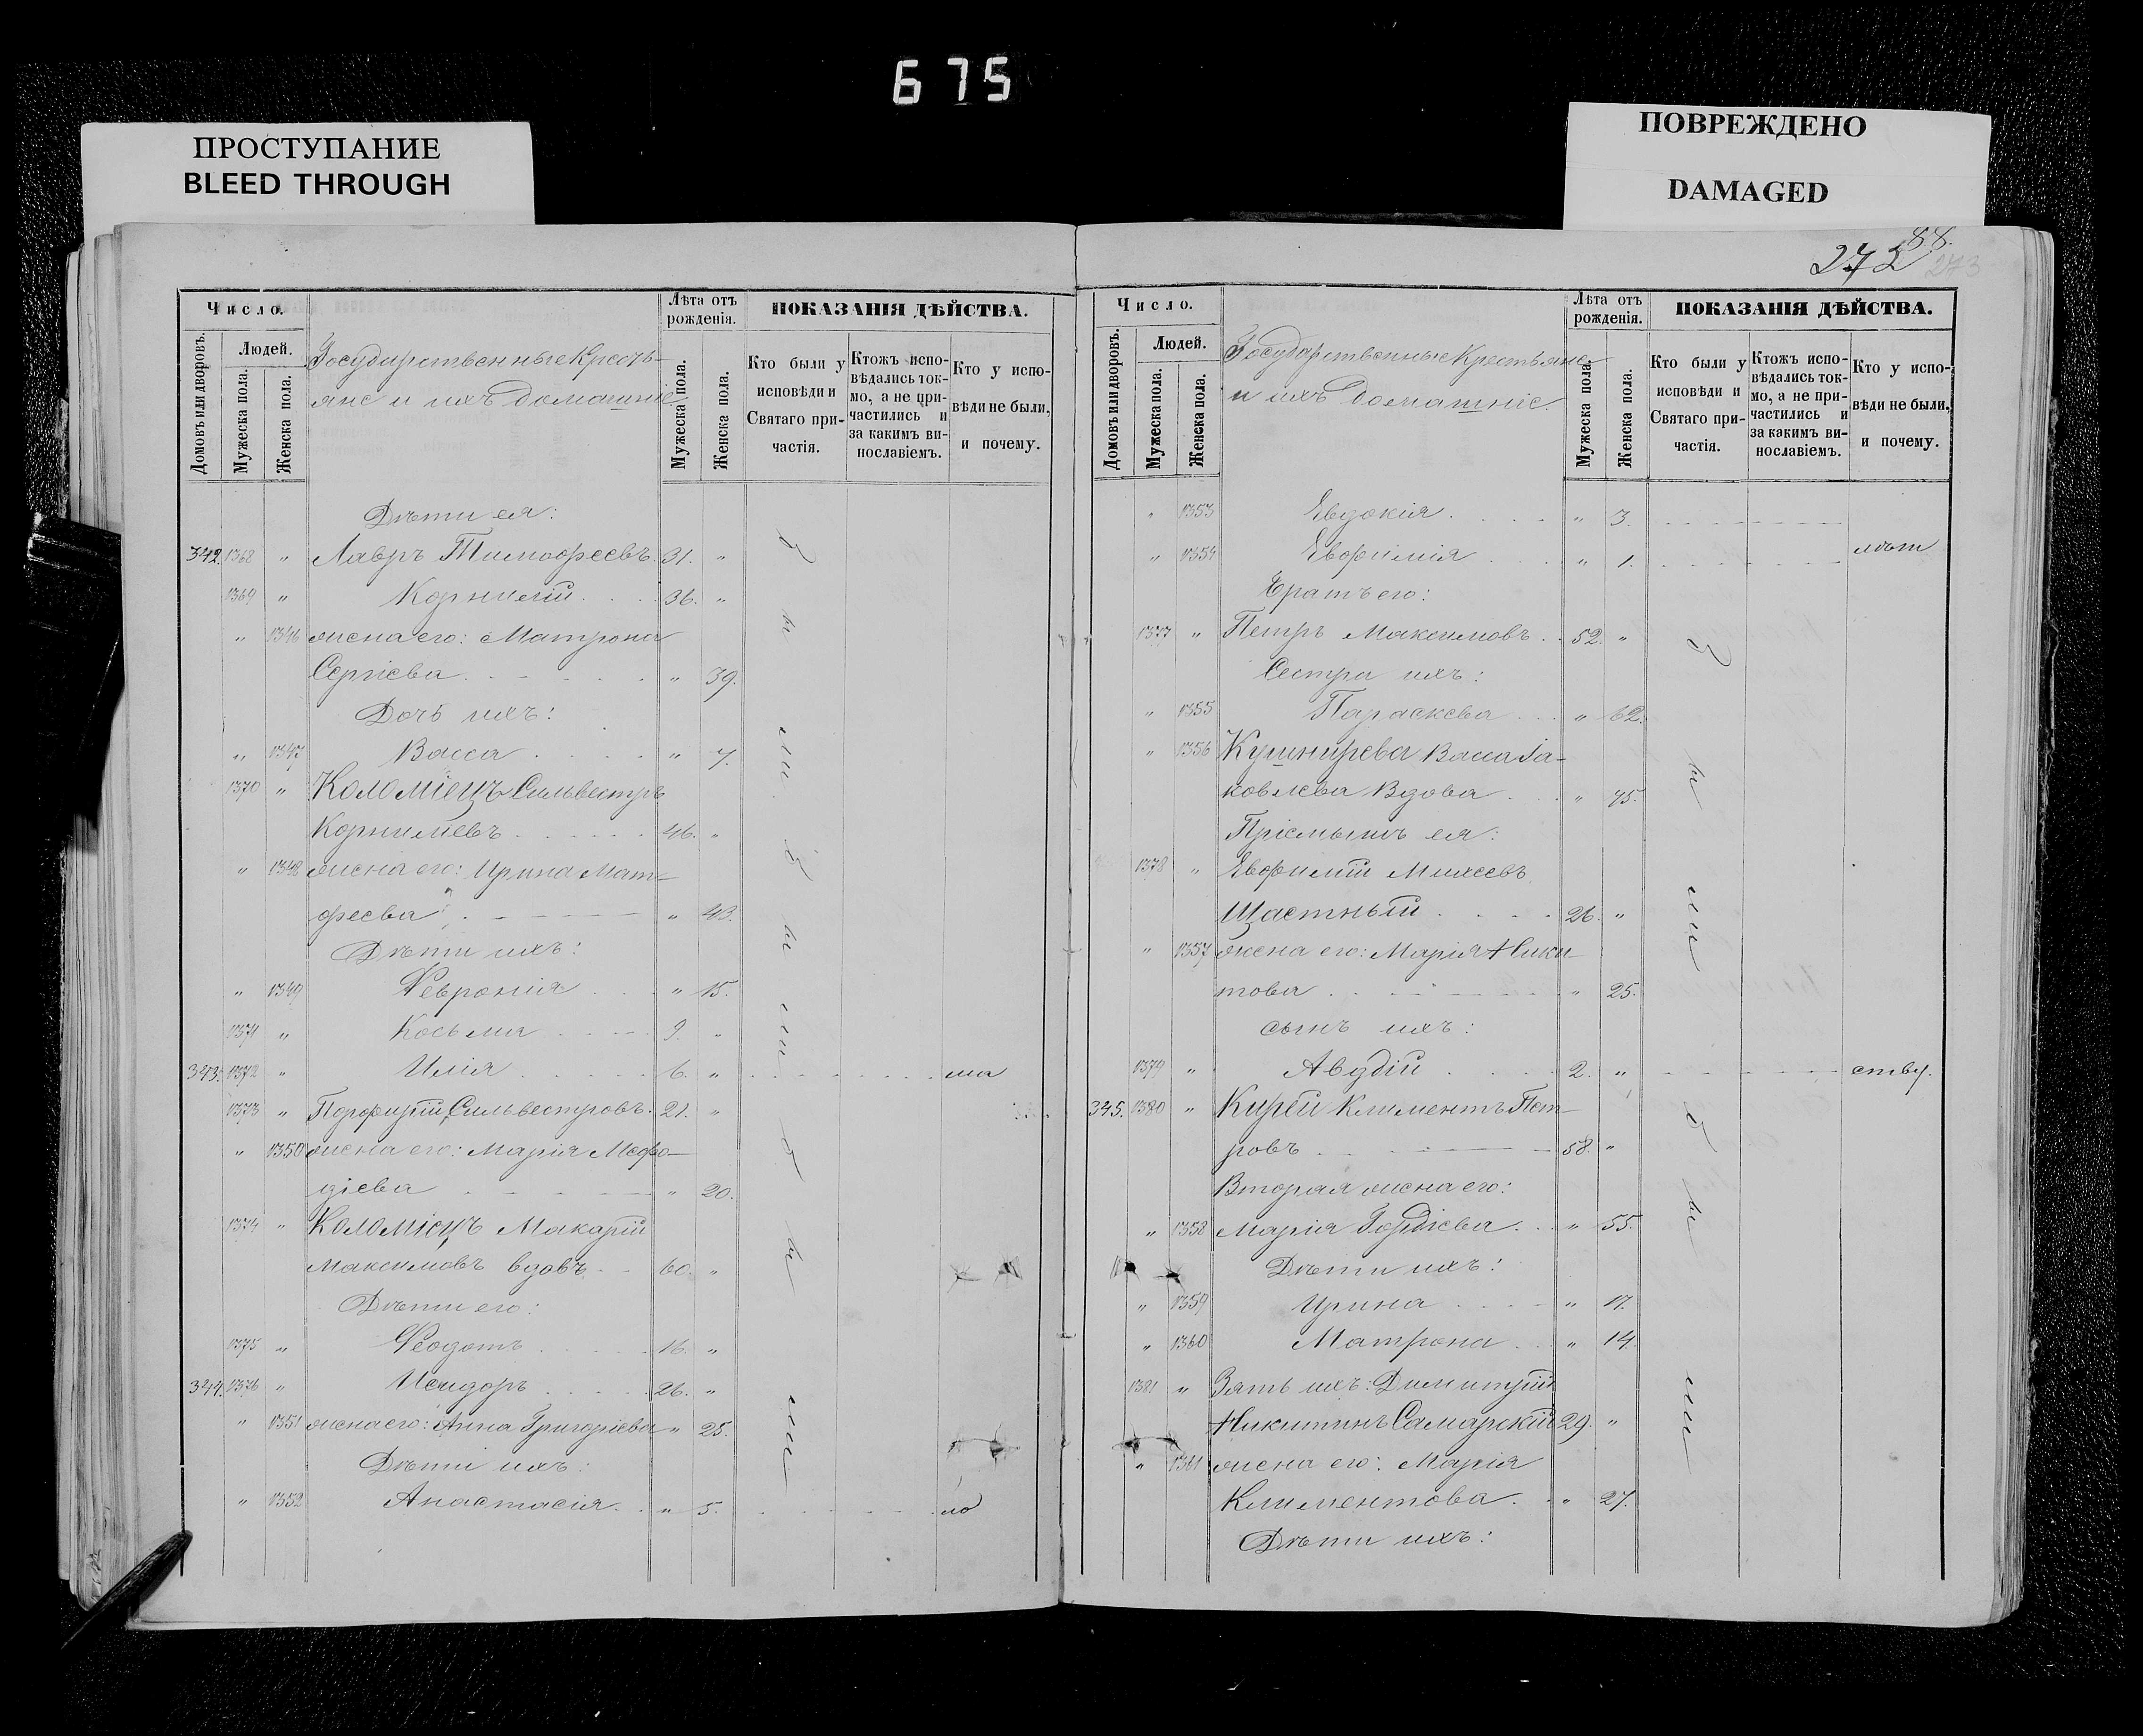 675
ПРОСТУПАНИЕ
BLEED THROUGH
ПОВРЕЖДЕНО
DAMAGED
88.
273
Число.
Людей.
Домовъ или дворовъ.
Мужеска пола.
Женска пола.
Государственные Кресть-
яне и ихъ домашніе
Лѣта отъ рожденія.
Мужеска пола.
Женска пола.
ПОКАЗАНІЯ ДѢЙСТВА.
Кто были у исповѣди и Святаго причастія.
Ктожъ исповѣдались токмо, а не причастились и за какимъ винословіемъ.
Кто у исповѣди не были, и почему.
Дѣти ея:
342. 1368 " Лавръ Тимофеевъ. 31. "
1369 " Корнилій 36. "
" 1346 жена его: Матрона
Сергіева " 39.
Дочь ихъ:
" 1347 Васса " 7.
1370 " Коломіецъ Сильвестръ
Корниліевъ 46. "
" 1348 жена его: Ирина Мат-
феева " 43.
Дѣти ихъ:
" 1349 Февронія " 15.
1371 " Косьма 9. "
343. 1372 " Илія 6. " ма
1373 " Порфирій Сильвестровъ. 21. "
" 1350 жена его: Марія Мефо-
діева " 20.
1374 " Коломіецъ Макарій
Максимовъ вдовъ 60. "
Дѣти его:
1375 " Феодотъ 16. "
344. 1376 " Исидоръ 26. "
" 1351 жена его: Анна Григоріева " 25.
Дѣти ихъ:
" 1352 Анастасія " 5. ло
были у были
Число.
Людей.
Домовъ или дворовъ.
Мужеска пола.
Женска пола.
Государственные Крестьяне
и ихъ домашніе.
Лѣта отъ рожденія.
Мужеска пола.
Женска пола.
ПОКАЗАНІЯ ДѢЙСТВА.
Кто были у исповѣди и Святаго причастія.
Ктожъ исповѣдались токмо, а не причастились и за какимъ винословіемъ.
Кто у исповѣди не были, и почему.
" 1353 Евдокія " 3.
" 1354 Евфимія " 1. лѣт
Братъ его:
1377 " Петръ Максимовъ 52. "
Сестра ихъ:
" 1355 Параскева " 62.
" 1356 Кушнирева Васса Іа-
ковлева Вдова " 75.
Пріемышъ ея:
1378 " Евфимій Михеевъ
Щастный 26. "
" 1357 жена его: Марія Ники-
това " 25.
сынъ ихъ:
1379 " Авдій 2. " ству.
345. 1380 " Кирій Климентъ Пет-
ровъ 58. "
Вторая жена его:
" 1358 Марія Гордіева " 55.
Дѣти ихъ:
" 1359 Ирина " 17.
" 1360 Матрона " 14.
1381 " Зять ихъ: Димитрій
Никитинъ Самарскій 29. "
" 1361 жена его: Марія
Климентова " 27.
Дѣти ихъ: